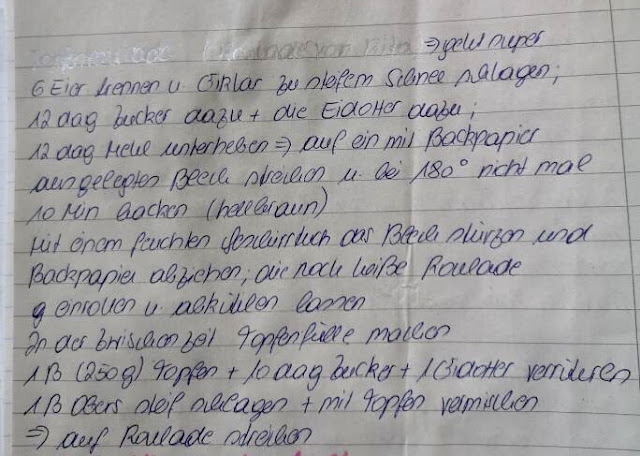 ⇒ geht super
6 Eier trennen u. Eiklar zu steifem Schnee schlagen;
12 dag Zucker dazu + die Eidotter dazu;
12 dag Mehl unterheben ⇒ auf ein mit Backpapier
ausgelegtes Blech streichen u. bei 180° nicht mal
10 Min backen (hellbraun)
Mit einem feuchten Geschirrtuch das Blech stürzen und
Backpapier abziehen; die noch heiße Roulade
einrollen u. abkühlen lassen
In der Zwischenzeit Topfenfülle machen
1 B (250g) Topfen + 10 dag Zucker + 1 Eidotter verrühren
1 B Obers steif schlagen + mit Topfen vermischen
⇒ auf Roulade streichen